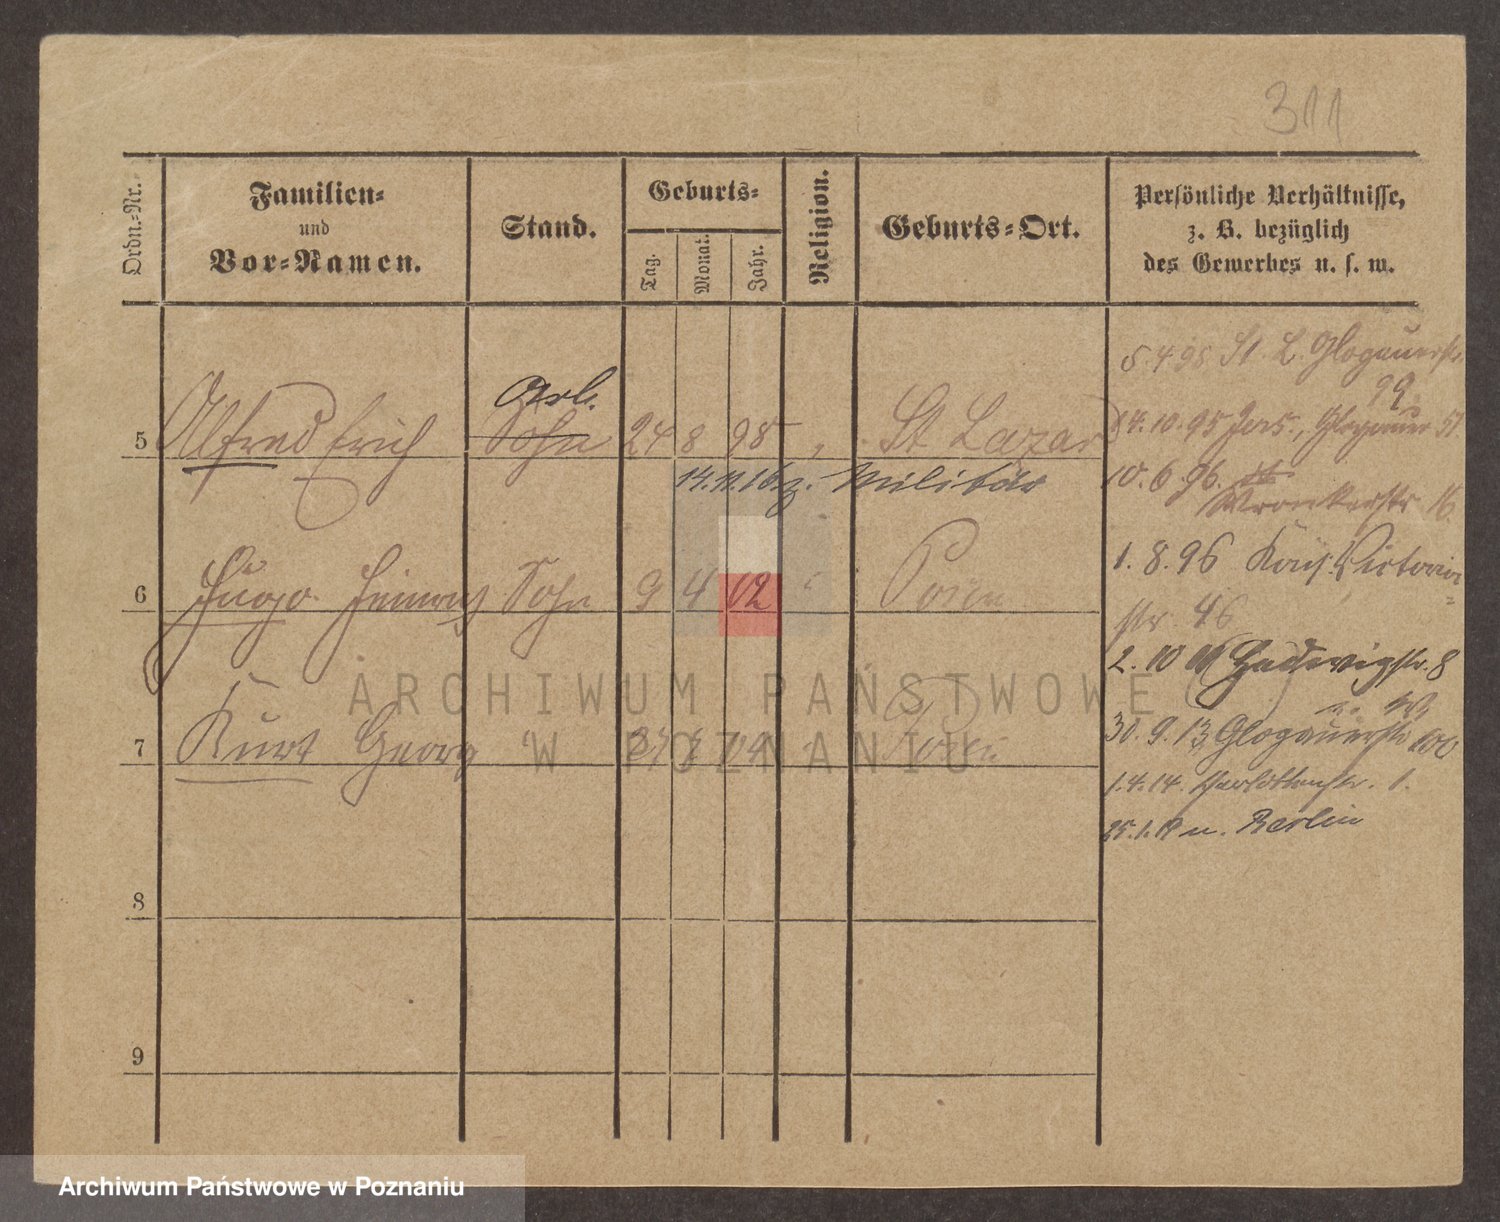 311
Ordn.=Nr.
Familien=
und
Vor=Namen.
Stand.
Geburts=
Tag.
Monat.
Jahr.
Religion.
Geburts=Ort.
Persönliche Verhältnisse,
z. B. bezüglich
des Gewerbes u. s. w.
5.4.95 St. L. Glogauerstr
99.
Arb.
5 Alfred Erich Sohn 24 8 95 " St Lazar
14.10.95 Jers., Glogauer 51.
14.11.16 z. Militär
10.6.96. Wronkerstr 16.
1.8.96 Kais. Victoria
6 Hugo Heinrich Sohn 9 4 02 " Posen
str. 46
2.10 Hedwigstr. 8
ARCHIWUM PAŃSTWOWE
30.9.13 Glogauerstr 100
7 Kurt Georg " 04 " Posen
W POZNANIU
1.4.14. Charlottenstr. 1.
25.1.19 n. Berlin
8
9
Archiwum Państwowe w Poznaniu